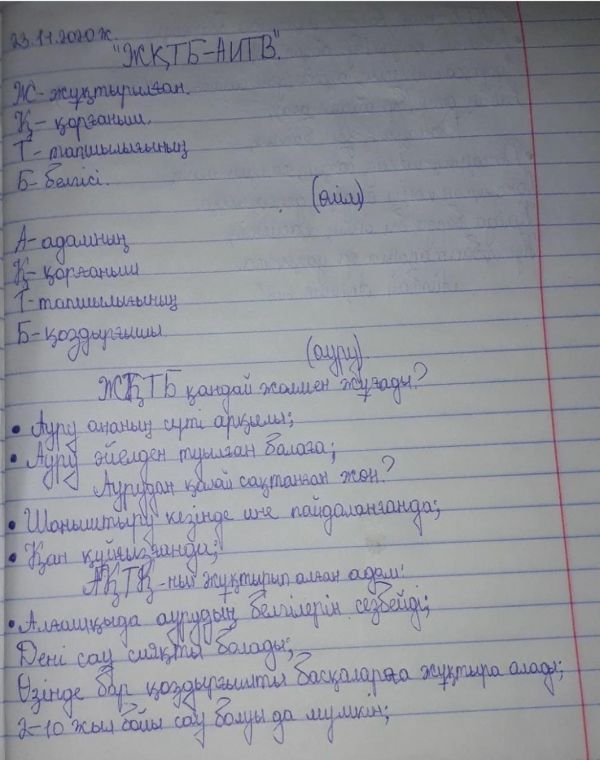 23.11.2020ж.
"ЖҚТБ-АИТВ".
Ж- жұқтырылған.
Қ- қорғаныш.
Т- тапшылығының
Б- белгісі.
(өлім)
А- адамның
Қ- қорғаныш
Т- тапшылығының
Б- қоздырғышы.
(ауру).
ЖҚТБ қандай жолмен жұғады?
• Ауру ананың сүті арқылы;
• Ауру әйелден туылған балаға;
Аурудан қалай сақтанған жөн?
• Шаныштыру кезінде ине пайдаланғанда;
• Қан құйылғанда;
АҚТҚ-ның жұқтырып алған адам:
• Алғашқыда аурудың белгілерін сезбейді;
Дені сау сияқты болады;
Өзінде бар қоздырғышты басқаларға жұқтыра алады;
2-10 жыл бойы сау болуы да мүмкін;